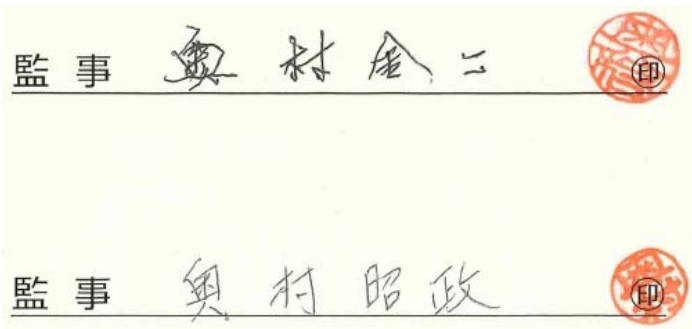 監事 奥村金二 ㊞
監事 奥村昭政 ㊞